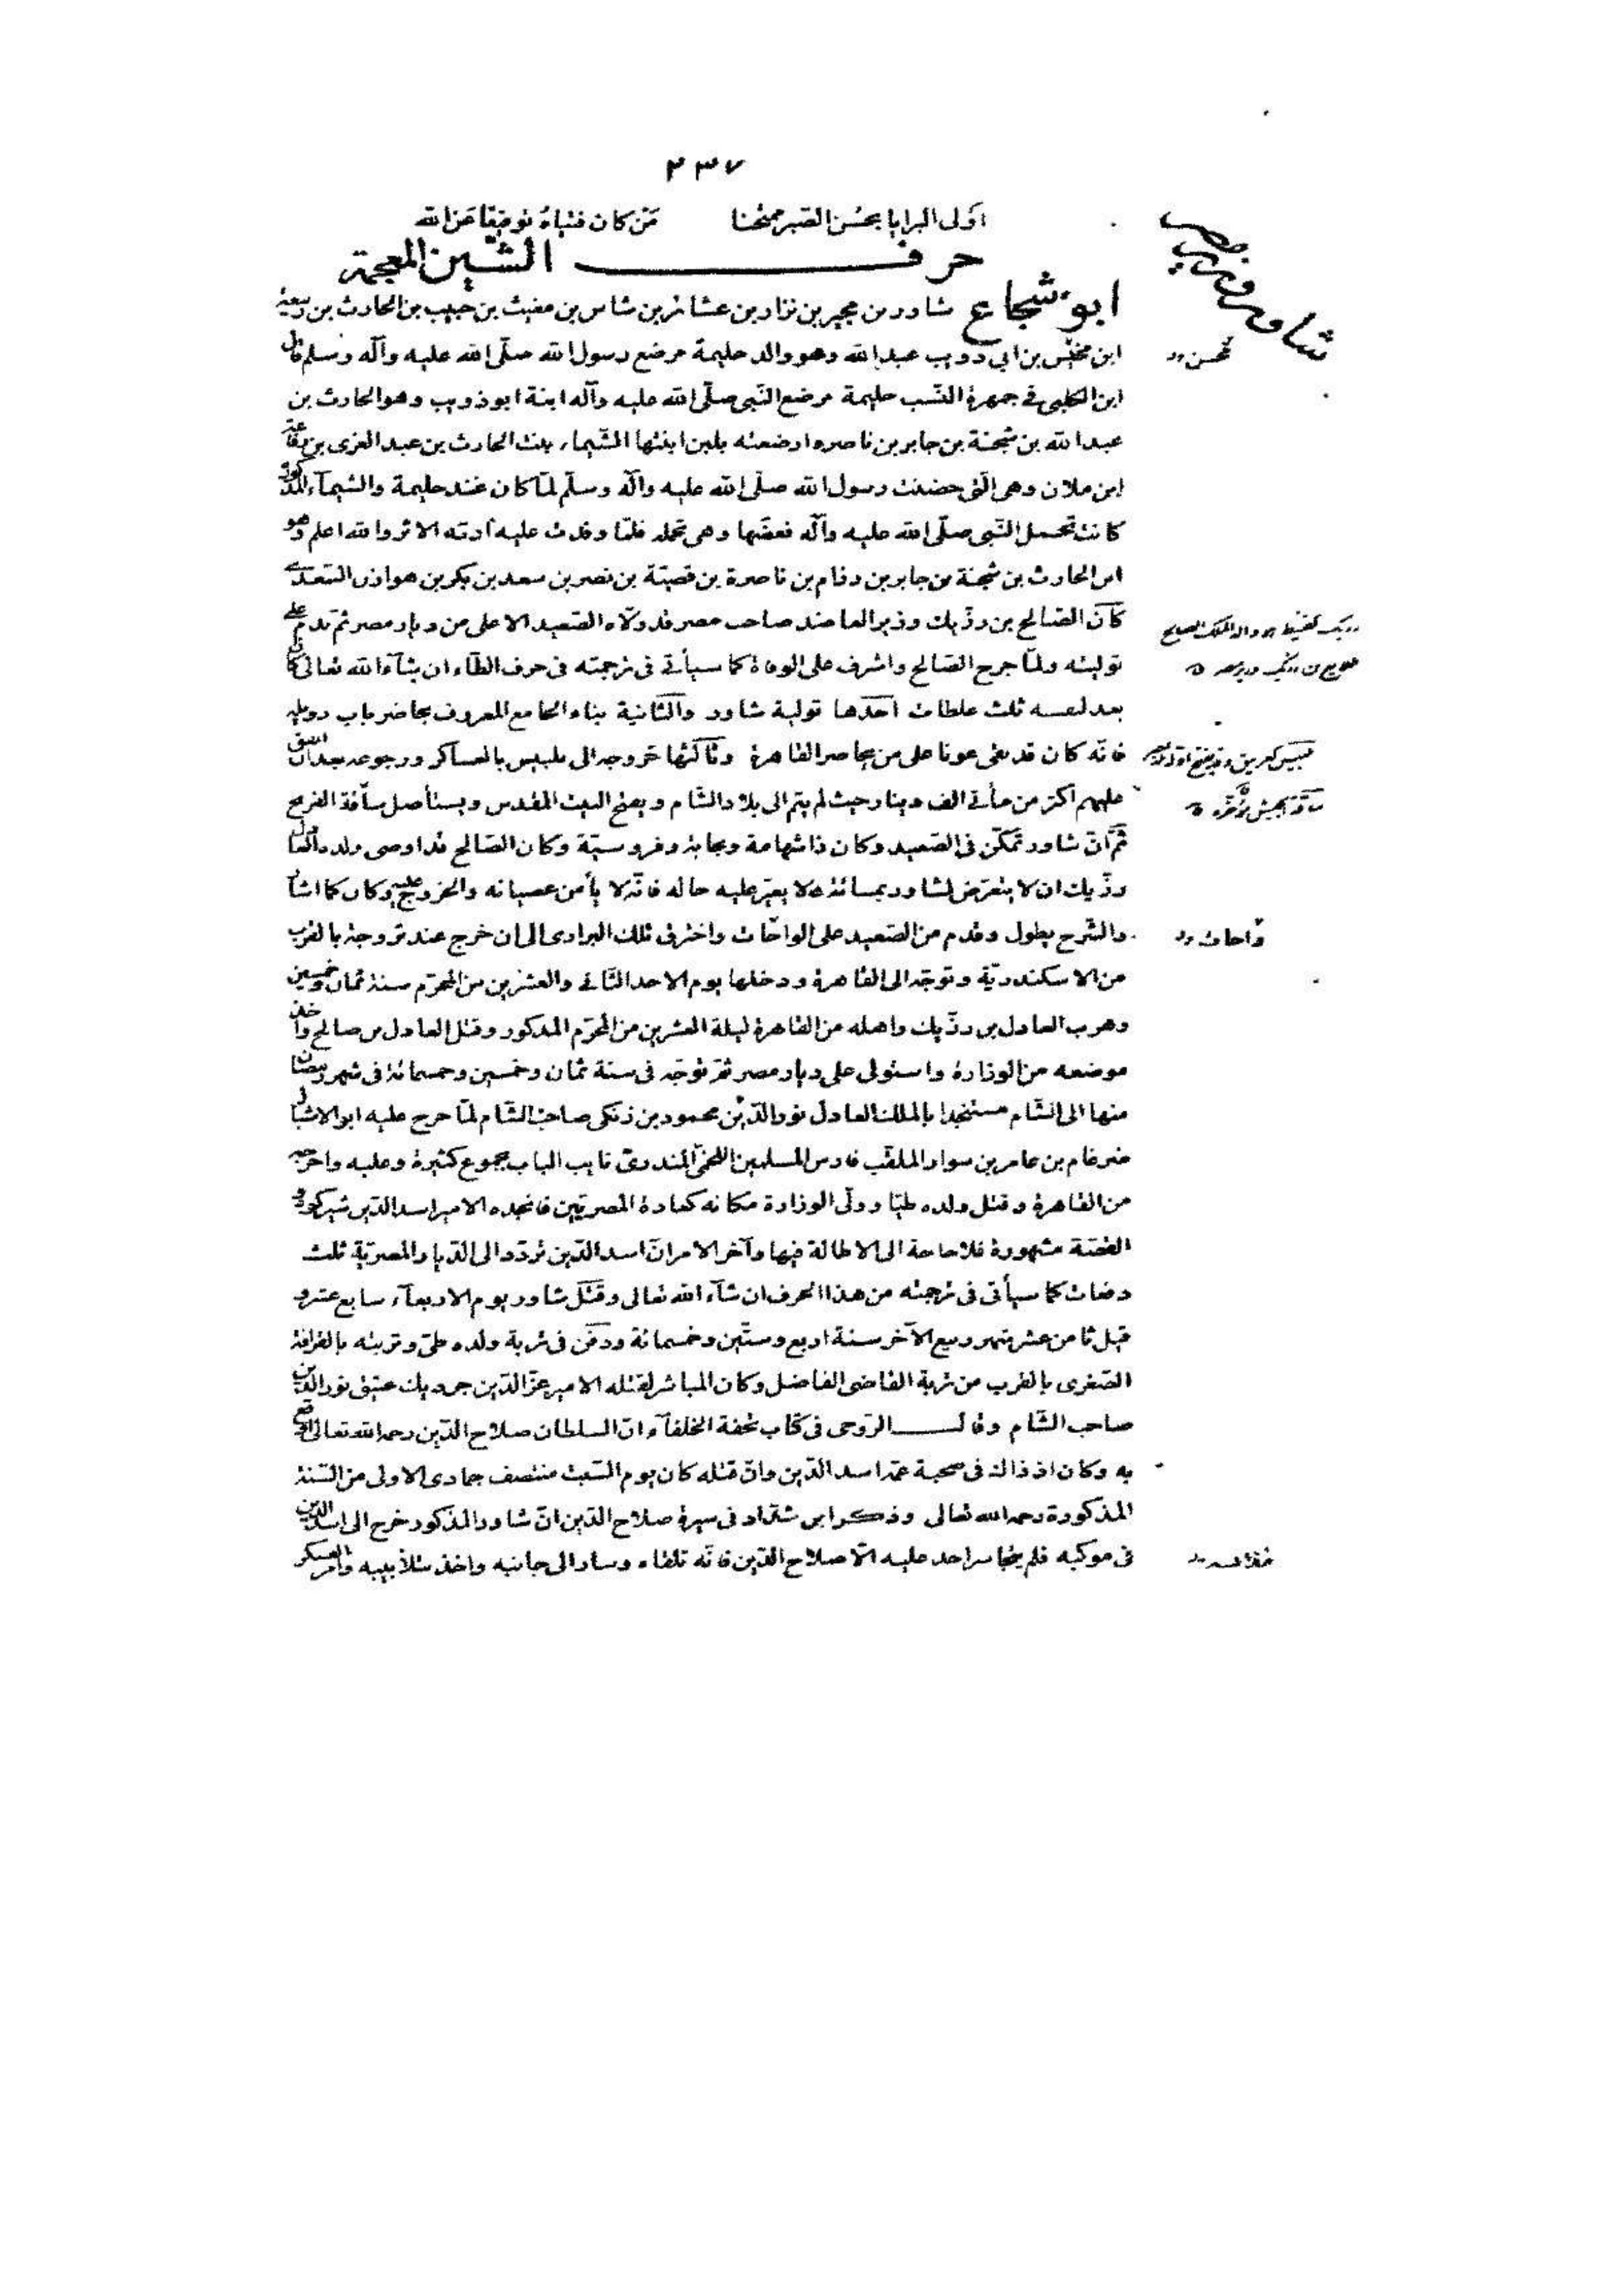 ٢٣٧
اولى البرايا بحسن الصبر ممتحنا من كان فتياه توقيعا عن الله
حرف الشين المعجمة
ابو شجاع شاور بن مجير بن نزار بن عشائر بن شاس بن مغيث بن حبيب بن الحارث بن ربيعة
ابن مخيّس بن ابي ذويب عبدالله وهو والد حليمة مرضع رسول الله صلّى الله عليه وآله وسلم قال
ابن الكلبى فى جمهرة النسب حليمة مرضع النّبى صلّى الله عليه وآله ابنة ابو ذويب وهو الحارث بن
عبدالله بن شجنة بن جابر بن ناصره ارضعته بلبن ابنتها الشّيماء بنت الحارث بن عبد العزى بن رفاعة
ابن ملان وهى الّتى حضنت رسول الله صلّى الله عليه وآله وسلّم لمّا كان عند حليمة والشيمآء المذكورة
كانت تحمل النّبى صلّى الله عليه وآله فعضّها وهى تحمله فلمّا وفدت عليه ارته الاثر والله اعلم وهو
ابن الحارث بن شجنة بن جابر بن رزام بن ناصرة بن قصيّة بن نصر بن سعد بن بكر بن هوازن السّعدى
كان الصّالح بن رزّيك وزير العاضد صاحب مصر قد ولّاه الصّعيد الاعلى من ديار مصر ثم ندم على
توليته ولمّا جرح الصّالح واشرف على الوفاة كما سيأتى فى ترجمته فى حرف الطّاء ان شآء الله تعالى كان
بعد لنفسه ثلث غلطات احدها تولية شاور والثّانية بناء الجامع المعروف بحاضر باب زويلة
فانّه كان قد بقى عونا على من يحاصر القاهرة وثالثها خروجه الى بلبيس بالعساكر ورجوعه بعد ان انفق
عليهم اكثر من مأتى الف دينار حيث لم يتم الى بلاد الشّام ويفتح البيت المقدس ويستأصل سأفة الفرنج
ثمّ انّ شاور تمكّن فى الصّعيد وكان ذا شهامة ونجابة وفروسيّة وكان الصّالح قد اوصى ولده العادل
رزّيك ان لا يتعرّض لشاور بمسائة ولا يغيّر عليه حاله فانّه لا يأمن عصيانه والخروج عليه وكان كما اشار
والشّرح يطول وقدم من الصّعيد على الواحات واخترق تلك البرارى الى ان خرج عند تروجة بالقرب
من الاسكندريّة وتوجّه الى القاهرة ودخلها يوم الاحد الثّانى والعشرين من المحرّم سنة ثمان وخمسين
وهرب العادل بن رزّيك واهله من القاهرة ليلة العشرين من المحرّم المذكور وقتل العادل بن صالح واخذ
موضعه من الوزارة واستولى على ديار مصر ثمّ توجّه فى سنة ثمان وخمسين وخمسمائة فى شهر رمضان
منها الى الشّام مستنجدا بالملك العادل نور الدّين محمود بن زنكى صاحب الشّام لمّا خرج عليه ابو الاشبال
ضرغام بن عامر بن سوار الملقّب فارس المسلمين اللخمىّ المنذرىّ نايب الباب بجموع كثيرة وغلبه واخرجه
من القاهرة وقتل ولده طيّا وولّى الوزارة مكانه كعادة المصريّين فانجده الامير اسد الدّين شيركوه
القصّة مشهورة فلا حاجة الى الاطالة فيها وآخر الامر انّ اسد الدّين تردّد الى الدّيار المصريّة ثلث
دفعات كما سيأتى فى ترجمته من هذا الحرف ان شآء الله تعالى وقتل شاور يوم الاربعآء سابع عشر و
قيل ثامن عشر شهر ربيع الآخر سنة اربع وستّين وخمسمائة ودفن فى تربة ولده طىّ وتربته بالقرافة
الصّغرى بالقرب من تربة القاضى الفاضل وكان المباشر لقتله الامير عزّ الدّين جرديك عتيق نور الدّين
صاحب الشّام وقال الرّوحى فى كتاب تحفة الخلفآء انّ السلطان صلاح الدّين رحمه الله تعالى اوقع
به وكان اذ ذاك فى صحبة عمّه اسد الدّين وانّ قتله كان يوم السّبت منتصف جمادى الاولى من السّنة
المذكورة رحمه الله تعالى وذكر ابن شدّاد فى سيرة صلاح الدّين انّ شاور المذكور خرج الى اسد الدين
فى موكبه فلم يتجاسر احد عليه الّا صلاح الدّين فانّه تلقاه وسار الى جانبه واخذ بتلابيبه وامر العسكر
شاور وزير مصر
محسن
واحات